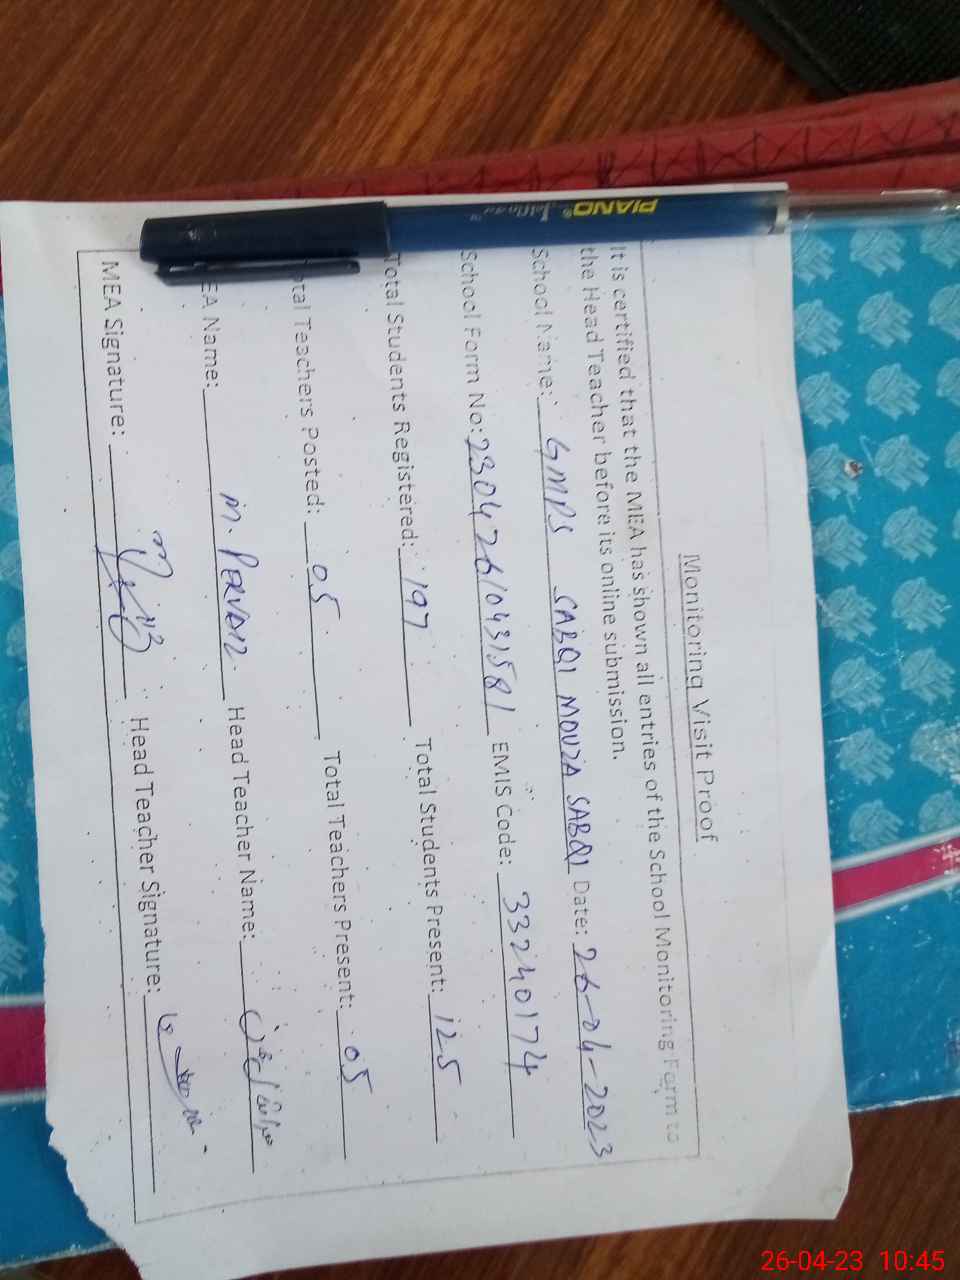 PIANO
Monitoring Visit Proof
It is certified that the MEA has shown all entries of the School Monitoring Form to
the Head Teacher before its online submission.
School Name: GMPS SABQI MOUZA SABQI Date: 26-04-2023
School Form No: 2304261043581 EMIS Code: 33240174
Total Students Registered: 197 Total Students Present: 125
tal Teachers Posted: 05 Total Teachers Present: 05
EA Name: M. PERVAIZ Head Teacher Name:
MEA Signature: Head Teacher Signature:
26-04-23 10:45